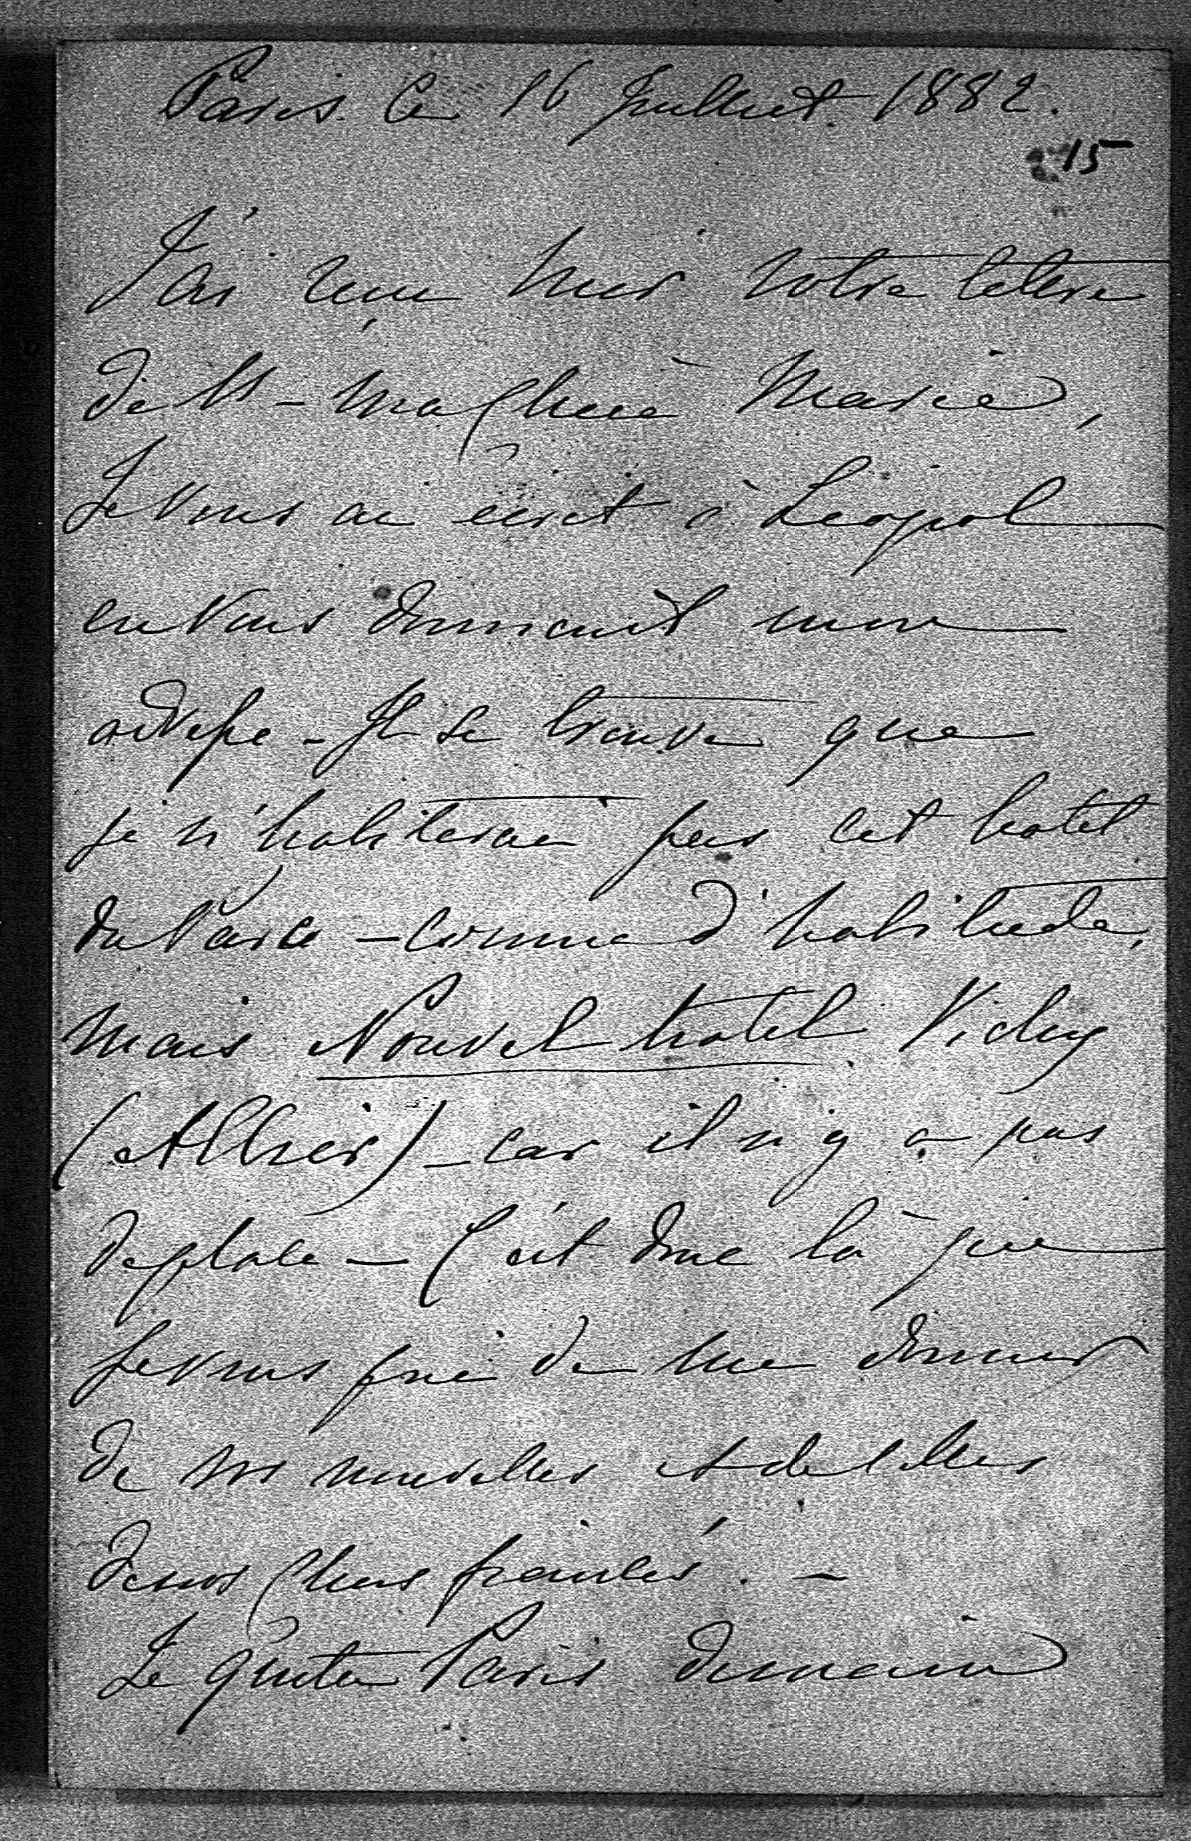 Paris le 16 Juillet 1882.
15
J'ai reçu hier votre lettre
de ma chere Marie,
Je vous ai écrit à Léopol
en vous donnant mon
adresse - Il se trouve que
je n'habiterai pas cet hotel
du Parc - comme d'habitude,
mais Nouvel hotel Vichy
(Allier) - car il n'y a pas
de place - C'est donc là que
je vous prie de me donner
de vos nouvelles et de celles
de nos chers fiancés. -
Je quitte Paris demain